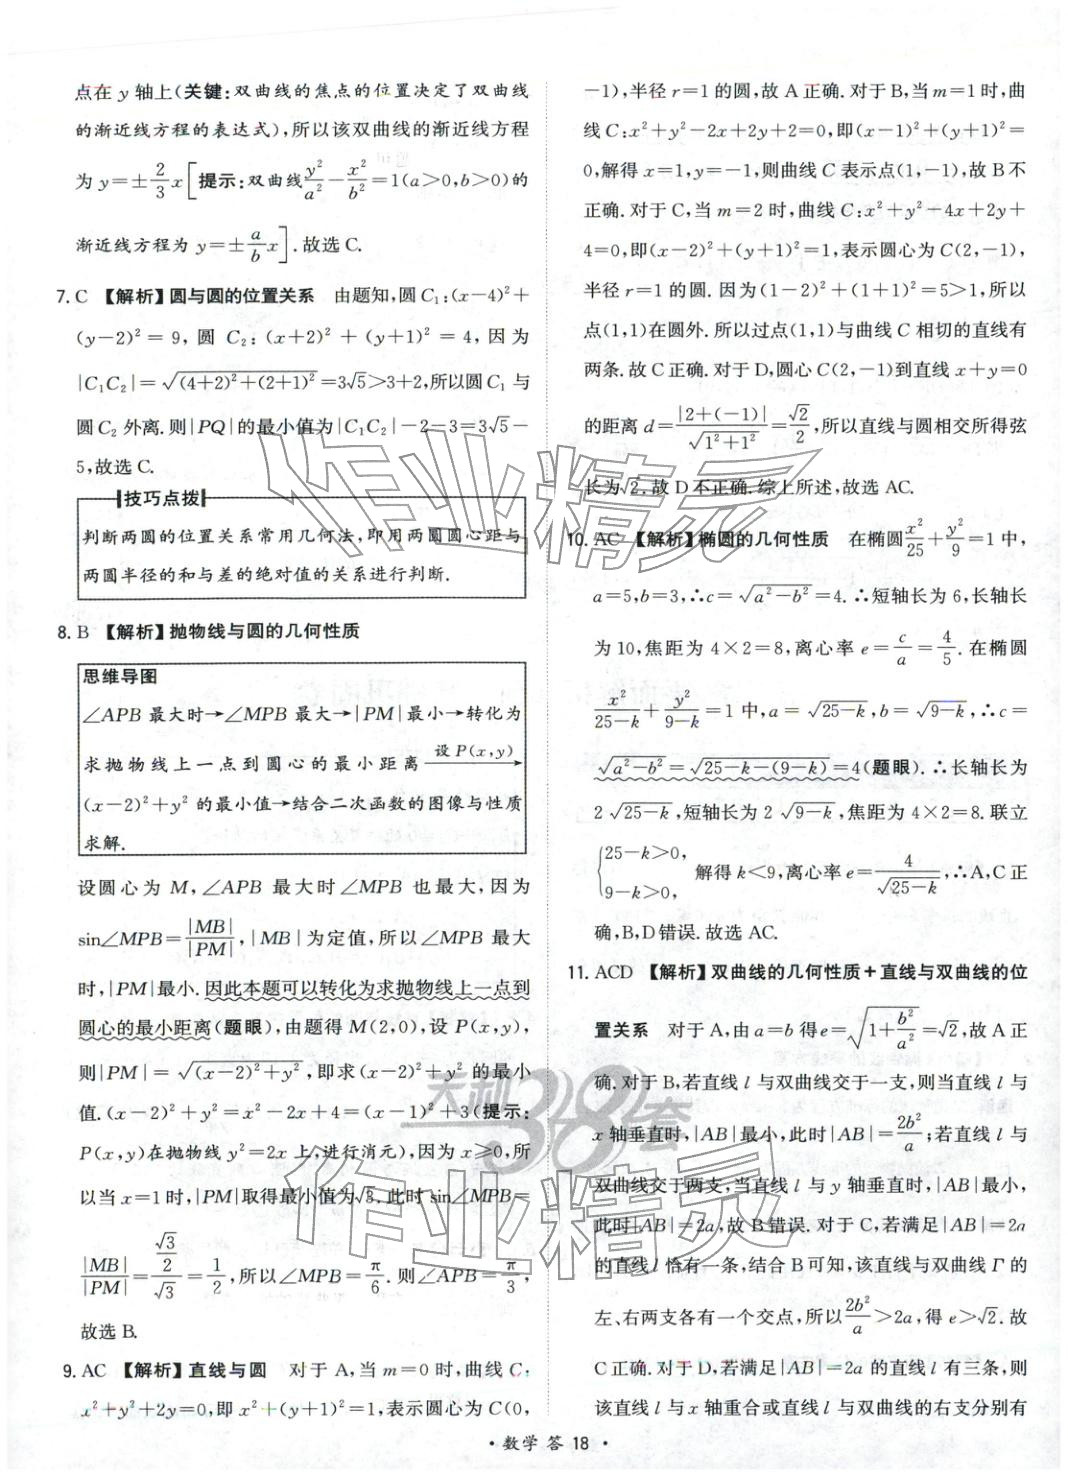 点在 y 轴上(关键:双曲线的焦点的位置决定了双曲线
的渐近线方程的表达式),所以该双曲线的渐近线方程
为 y=±2/3 x[提示:双曲线 y²/a²-x²/b²=1(a>0,b>0)的
渐近线方程为 y=±a/b x].故选 C.
7. C 【解析】圆与圆的位置关系 由题知,圆 C₁:(x-4)²+
(y-2)²=9,圆 C₂:(x+2)²+(y+1)²=4,因为
|C₁C₂|=√((4+2)²+(2+1)²)=3√5>3+2,所以圆 C₁ 与
圆 C₂ 外离.则|PQ|的最小值为|C₁C₂|-2-3=3√5-
5,故选 C.
技巧点拨
判断两圆的位置关系常用几何法,即用两圆圆心距与
两圆半径的和与差的绝对值的关系进行判断.
8. B 【解析】抛物线与圆的几何性质
思维导图
∠APB 最大时→∠MPB 最大→|PM|最小→转化为
求抛物线上一点到圆心的最小距离 设 P(x,y)→
(x-2)²+y² 的最小值→结合二次函数的图像与性质
求解.
设圆心为 M,∠APB 最大时∠MPB 也最大,因为
sin∠MPB=|MB|/|PM|,|MB|为定值,所以∠MPB 最大
时,|PM|最小.因此本题可以转化为求抛物线上一点到
圆心的最小距离(题眼),由题得 M(2,0),设 P(x,y),
则|PM|=√((x-2)²+y²),即求(x-2)²+y² 的最小
值.(x-2)²+y²=x²-2x+4=(x-1)²+3(提示:
P(x,y)在抛物线 y²=2x 上,进行消元),因为 x≥0,所
以当 x=1 时,|PM|取得最小值为√3,此时 sin∠MPB=
|MB|/|PM|=(√3/2)/√3=1/2,所以∠MPB=π/6.则∠APB=π/3,
故选 B.
9. AC 【解析】直线与圆 对于 A,当 m=0 时,曲线 C:
x²+y²+2y=0,即 x²+(y+1)²=1,表示圆心为 C(0,
-1),半径 r=1 的圆,故 A 正确.对于 B,当 m=1 时,曲
线 C:x²+y²-2x+2y+2=0,即(x-1)²+(y+1)²=
0,解得 x=1,y=-1,则曲线 C 表示点(1,-1),故 B 不
正确.对于 C,当 m=2 时,曲线 C:x²+y²-4x+2y+
4=0,即(x-2)²+(y+1)²=1,表示圆心为 C(2,-1),
半径 r=1 的圆.因为(1-2)²+(1+1)²=5>1,所以
点(1,1)在圆外.所以过点(1,1)与曲线 C 相切的直线有
两条.故 C 正确.对于 D,圆心 C(2,-1)到直线 x+y=0
的距离 d=|2+(-1)|/√(1²+1²)=√2/2,所以直线与圆相交所得弦
长为√2.故 D 不正确.综上所述,故选 AC.
10. AC 【解析】椭圆的几何性质 在椭圆 x²/25+y²/9=1 中,
a=5,b=3,∴c=√(a²-b²)=4.∴短轴长为 6,长轴长
为 10,焦距为 4×2=8,离心率 e=c/a=4/5.在椭圆
x²/(25-k)+y²/(9-k)=1 中,a=√(25-k),b=√(9-k),∴c=
√(a²-b²)=√(25-k-(9-k))=4(题眼).∴长轴长为
2√(25-k),短轴长为 2√(9-k),焦距为 4×2=8.联立
{25-k>0, 9-k>0, 解得 k<9,离心率 e=4/√(25-k),∴A,C 正
确,B,D 错误.故选 AC.
11. ACD 【解析】双曲线的几何性质+直线与双曲线的位
置关系 对于 A,由 a=b 得 e=√(1+b²/a²)=√2,故 A 正
确.对于 B,若直线 l 与双曲线交于一支,则当直线 l 与
x 轴垂直时,|AB|最小,此时|AB|=2b²/a;若直线 l 与
双曲线交于两支,当直线 l 与 y 轴垂直时,|AB|最小,
此时|AB|=2a,故 B 错误.对于 C,若满足|AB|=2a
的直线 l 恰有一条,结合 B 可知,该直线与双曲线 Γ 的
左、右两支各有一个交点,所以 2b²/a>2a,得 e>√2.故
C 正确.对于 D,若满足|AB|=2a 的直线 l 有三条,则
该直线与 x 轴重合或直线与双曲线的右支分别有
· 数学 答 18 ·
作业精灵
天利38套
作业精灵